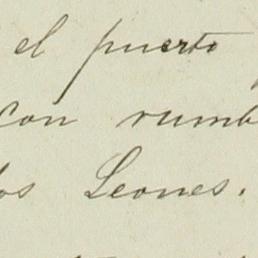 el puerto
con rumb
os Leones.